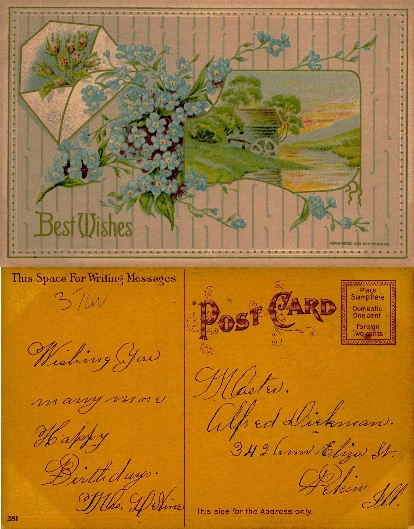 Best Wishes
This Space For Writing Messages
POST CARD
Place
Stamp here
Domestic
One cent
Foreign
Two cents
Wishing You
many more
Happy
Birthdays.
Mrs.
Master.
Alfred Dickman.
342 Eliza St.
Pekin
Ill.
281
This side for the Address only.